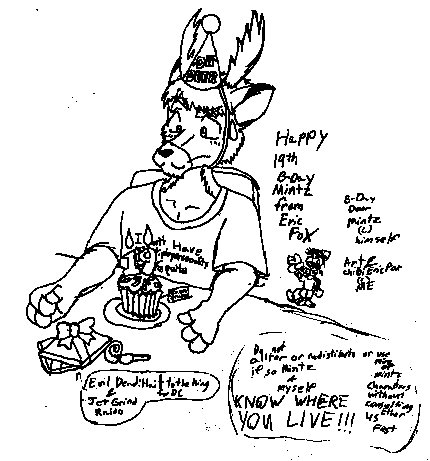 Happy
19th
B-Day
Mintz
from
Eric
Fox
B-Day
Deer
Mintz
(c)
himself
Art &
chibi Eric Fox
ME
I Have
Evil Dead: Hail to the King
&
Jet Grind
Radio
for DC
Do not
alter or redistribute or use
if so Mintz
&
myself
KNOW WHERE
YOU LIVE!!!
Mintz
Characters
without
consulting
us Either
First